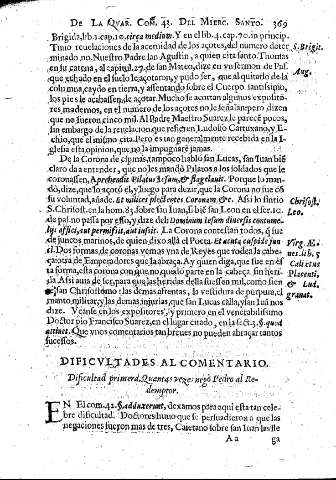 DE LA QVAR. COM. 43. DEL MIERC. SANTO. 369
Brigida, lib. 2. cap. 10. circa medium. Y en el lib. 4. cap. 70. in princip.
Tuuo reuelaciones de la acerbidad de los açotes, del numero deter
minado no. Nuestro Padre san Agustin, a quien cita santo Thomas
en su catena, al capit. 27. de san Mateo, dize en vn sermon de Pas.
que echado en el suelo le açotaron, y pudo ser, que al quitarlo de la
columna, caydo en tierra, y assentando sobre el Cuerpo santissimo,
los pies le acabassen, de açotar. Mucho se acortan algunos expositó-
res, modernos, en el numero de los açotes no se señalan, pero dizen
que no fueron cinco mil. Al Padre Maestro Suarez, le parece pocos,
sin embargo de la reuelacion que refieren Ludolfo Cartuxano, y E-
chio, que el mismo cita. Pero es tan generalmente recebida en la I-
glesia esta opinion, que no la impugnarè jamas.
De la Corona de espinas, tampoco hablò san Lucas, san Iuan biẽ
claro da a entender, que no les mandò Pilatos a los soldados que le
coronassen, Apprehendit Pilatus Iesum, & flagellauit. Porque lo man-
dò, dize, que lo açotò el, y luego para dezir, que la Corona no fue cõ
su voluntad, añade. Et milites plectentes Coronam &c. Assi lo sintio
S. Chrisost. en la hom. 83. sobre san Iuan, si biẽ san Leon en el ser. 10.
de pas. no passa por esso, y dize del Dominum Iesum diuersis contume-
lijs affici, aut permisit, aut iussit. La Corona contestan todos, q̃ fue
de juncos marinos, de quien dixo allà el Poeta. Et acuta cuspide jun
ci. Dos formas de coronas vemos vna de Reyes que rodea la cabe-
ça, otra de Emperadores que la abraça. Ay quien diga, que fue en es
ta forma, esta corona con que no quedò parte en la cabeça sin heri-
da. Assi aura de ser, para que las heridas della fuessen mil, como sien
te san Christoforo: las demas afrentas, la vestidura de purpura, el
manto militar, y las demas injurias, que san Lucas calla, y san Iuã nos
dize. Veanse en los expositores, y primero en el venerabilissimo
Doctor pio Francisco Suarez, en el lugar citado, en la sect. 3. §. quod
attinet. Que vnos comentarios tan breues no pueden abraçar tantos
sucessos.
S. Brigit.
Aug.
Chrisost.
Leo.
Virg. Æ-
nei. lib. 5
Caliet us
Placenti,
& Lud.
granat.
DIFICVLTADES AL COMENTARIO.
Dificultad primera. Quantas vezes negò Pedro al Re-
demptor.
EN El com. 42. §. adduxerunt, dexamos para aqui esta tan cele-
bre dificultad. Doctores huuo que se persuadieron a que las
negaciones fueron mas de tres, Caietano sobre san Iuan las lle
A a ga